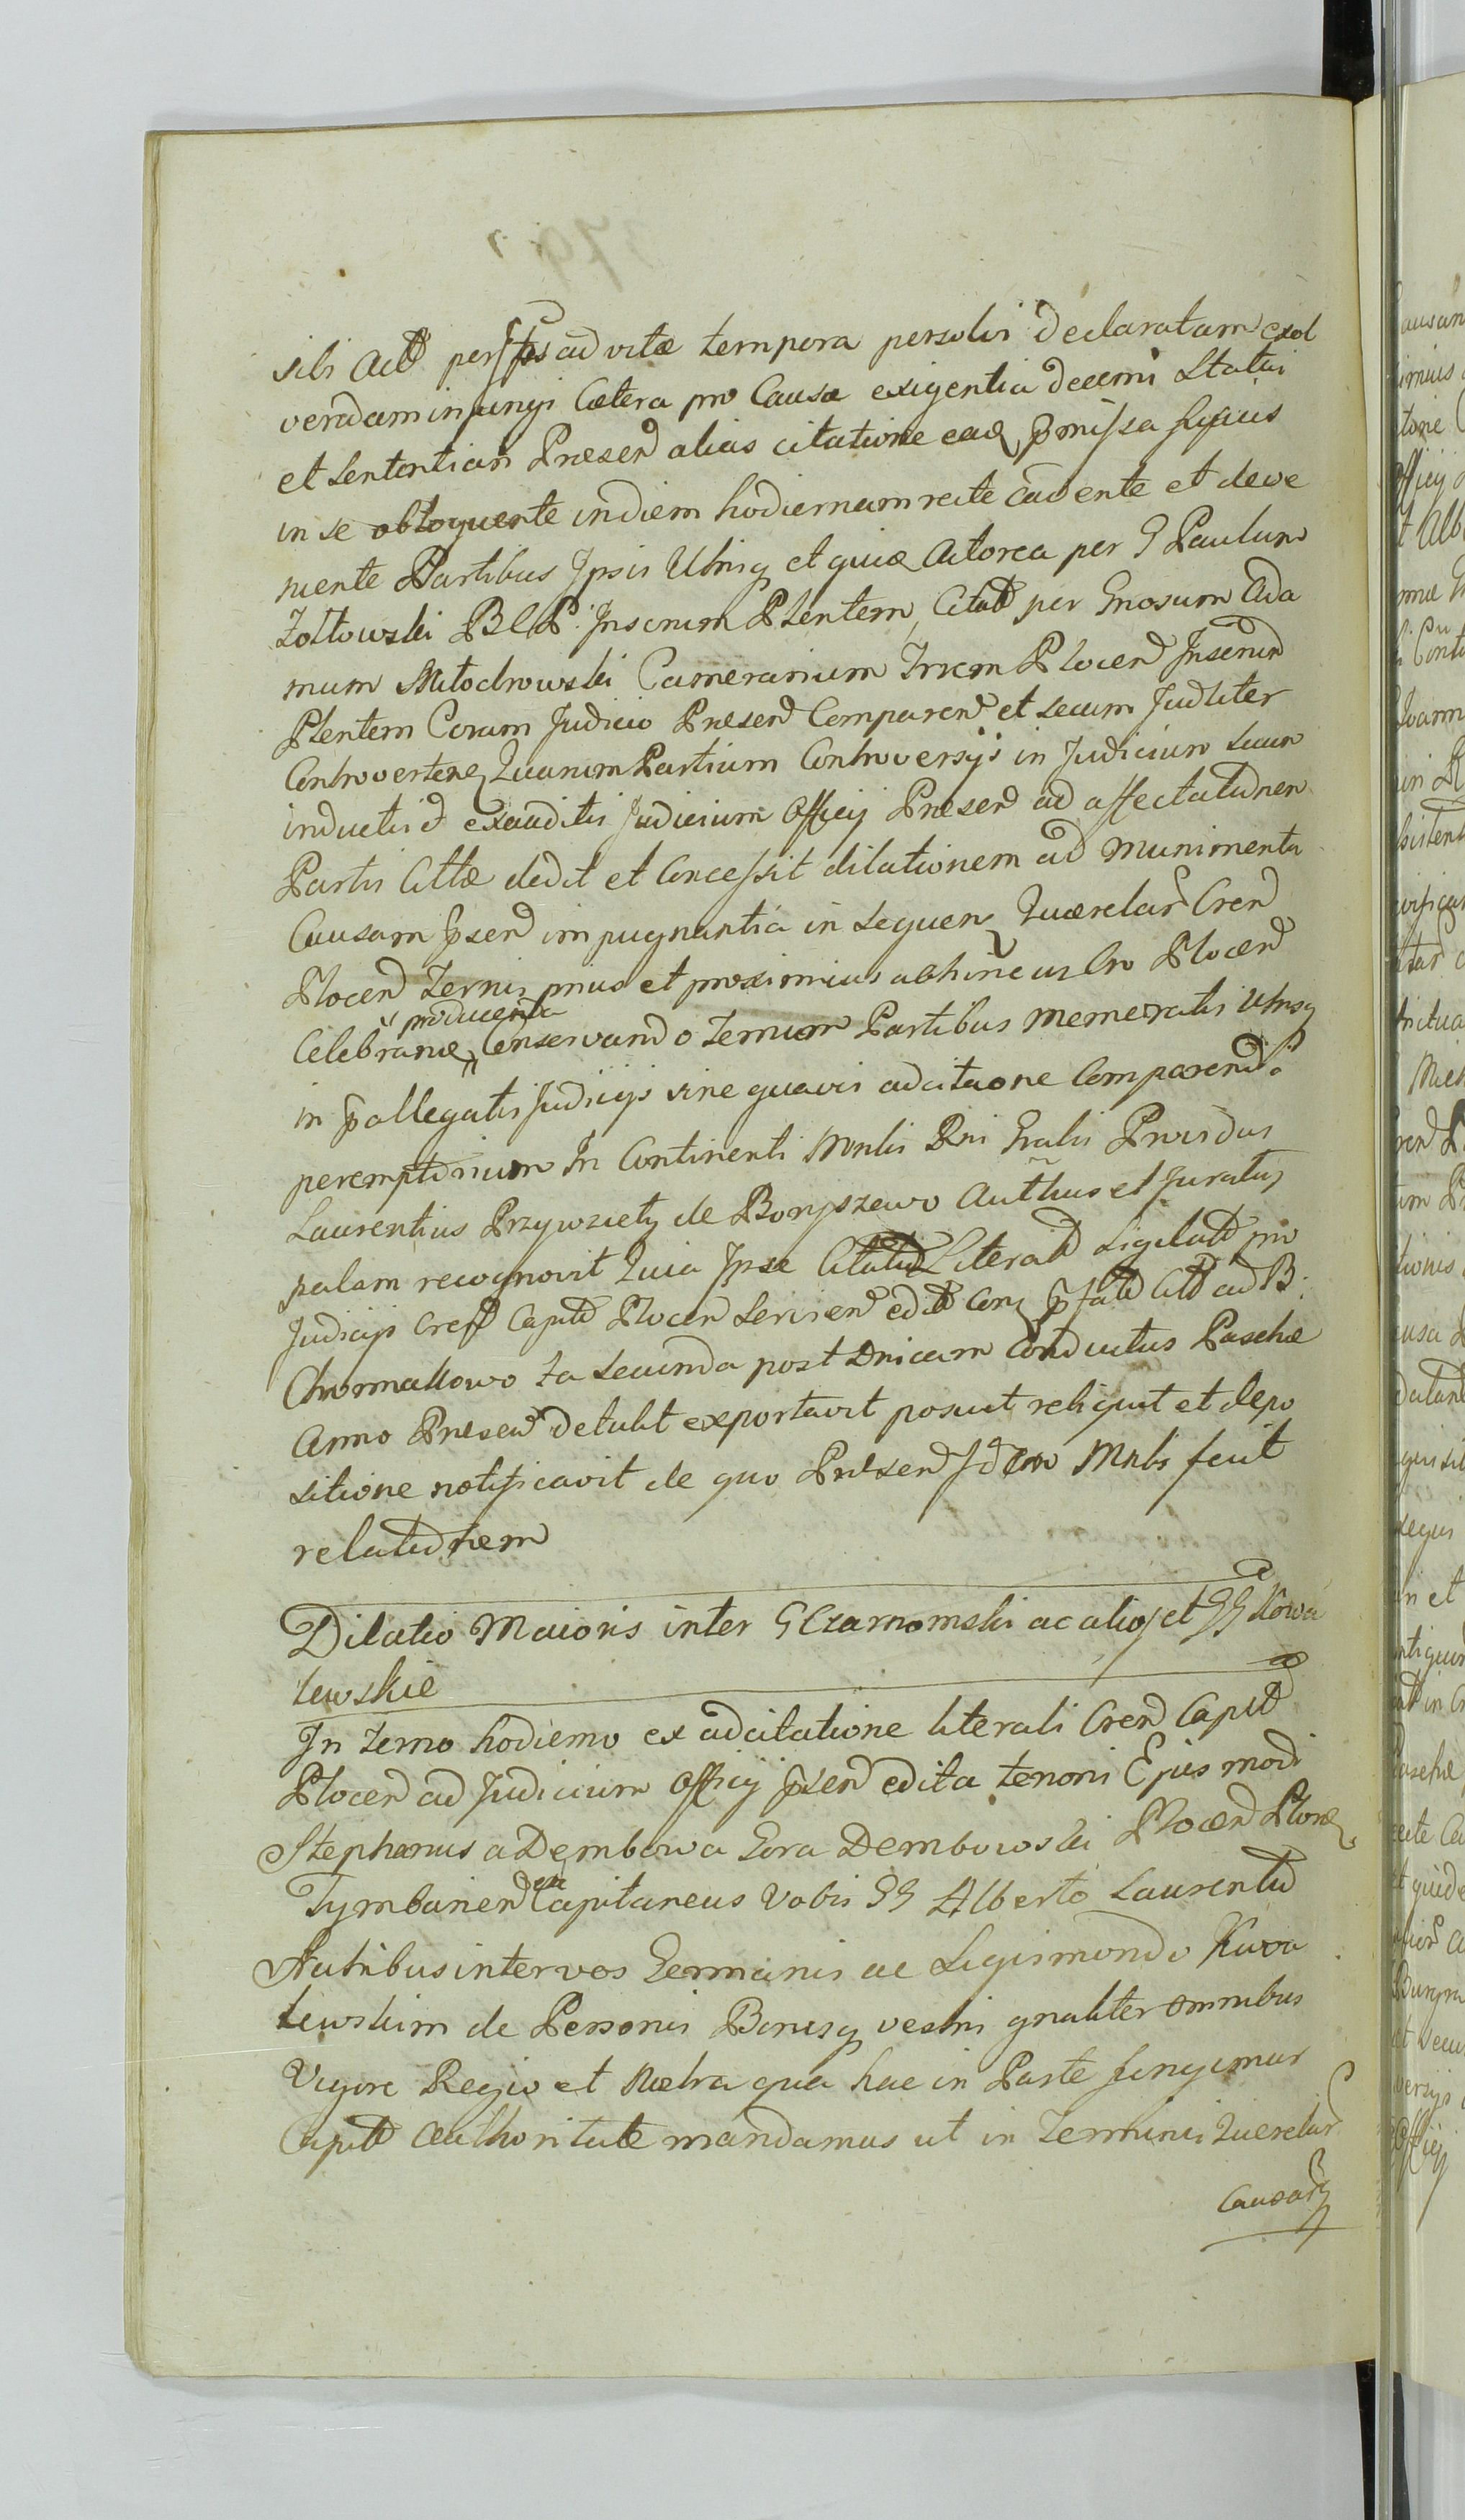 sibi Actt per ad vitæ tempora persolvi declaratam exol
vendam injungi Cætera pro Causæ exigentia decerni Statui
et Sententiari Præsend alias citatione eadq præmissa fusius
in se obloquente in diem hodiernam recte cadente et deve
niente Partibus Ipsis Utrisq et quidem Actorea per G Paulum
Zołtowski B C P: Juscrium Plentem, Citatd per Gnosum Ada
mum Miłochrowski Camerarium Trrem Plocend
Plentem Coram Judicio Præsend Comparend et secum Judliter
Controverten Quarum Partium Controversijs in Judicium suum
inductis exauditis Judicium Officij Præsend ad affectationem
Partis Cittæ dedit et Concessit dilationem ad munimenta
Causam Psend impugnantia in sequen Querelar Crend
Plocend Ternis prius et proximius abhinc in Cro Plocend
producenda
Celebrane, Conservando Ternum Partibus memeratis Utrisq
in Pallegatis Judicijs sine quavis adcitaone Comparendi
peremptorium In Continenti Mnrlis Rni Gralis Providus
Laurentius Przywziety de Boryszewo Authus et Juratus
palam recognovit Quia Ipse Literatd Sigilatd pro
Judicijs Crest Capitd Plocend Servien edit Citd ad B:
Chormallowo ta secunda post Dnicam Conductus Paschæ
Anno Præsend detulit exportavit posuit reliquit et depo
sitione notificavit de quo Præsend Idem Mnlis fecit
relationem
Dilatio Maioris inter G Czarnomski ac alios et GG Kowa
lewskie
In Terno hodierno ex adcitatione literali Crend Capitd
Plocend ad Judicium Officij Psend edita tenoris Ejus modi
Stephanus a Dembowa Gora Dembowski Plocend Płonq
Tymbarien etc Capitaneus Vobis GG Alberto Laurentio
Fratribus inter vos Germanis ac Sigismondo Kowa
lewskim de Personis Bonisq vestris gnaliter omnibus
Vigore Regio et Nostra qua hac in Parte fungimur
Capitd Authoritate mandamus ut in Terminis Querelar
Causarq